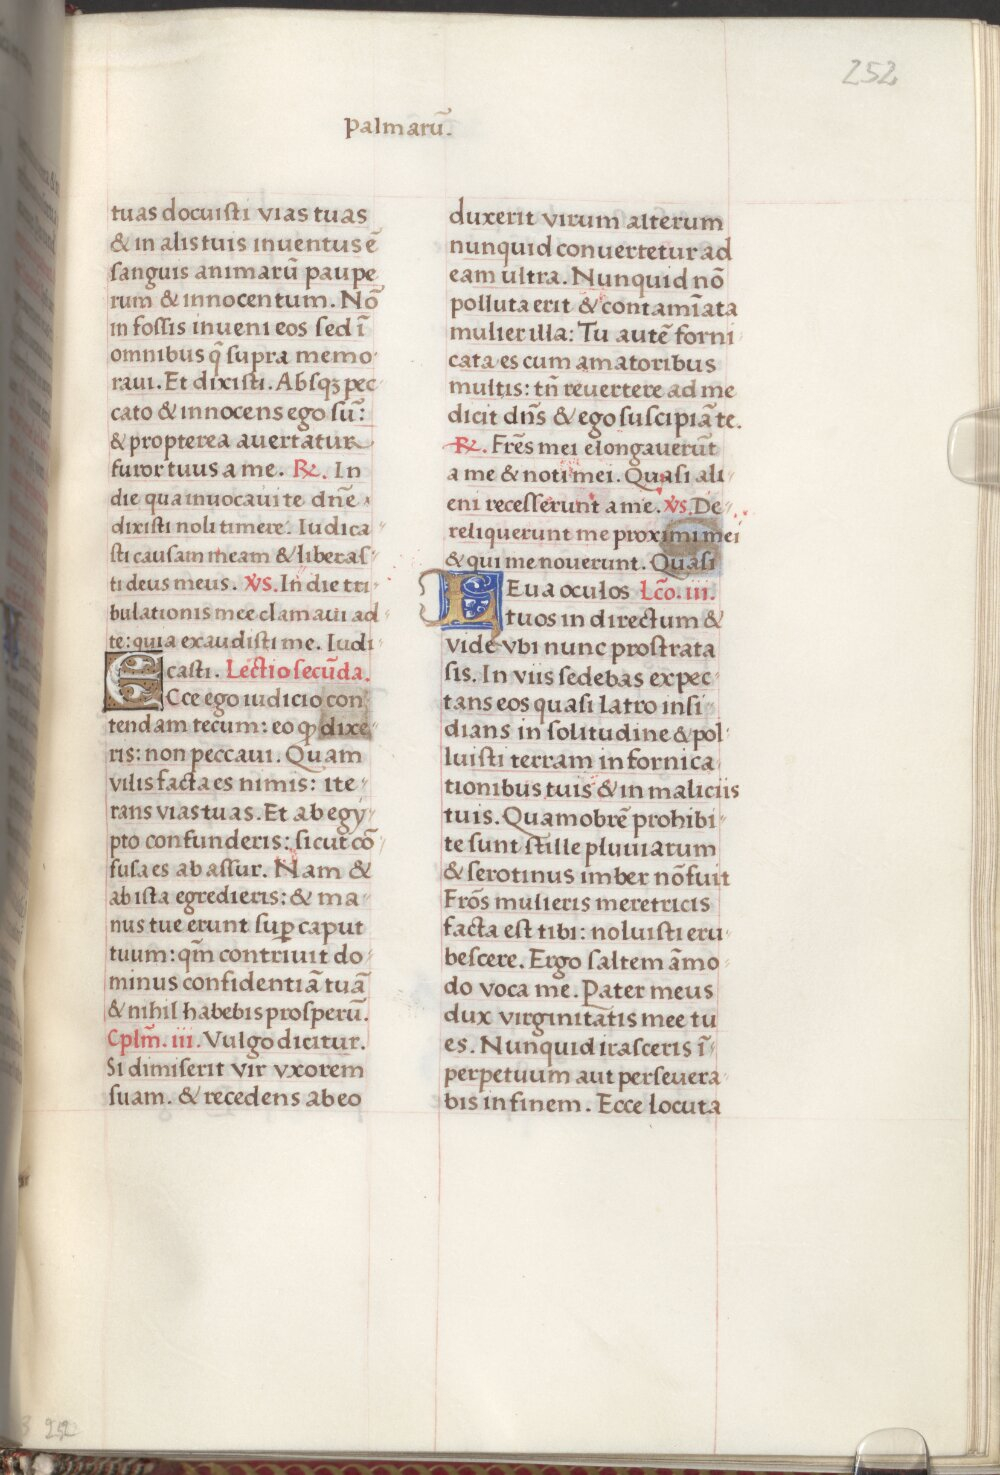 252
Palmarū.
tuas docuisti vias tuas
& in alis tuis inuentus ē
sanguis animarū paupe
rum & innocentum. Nō
in fossis inueni eos sed ī
omnibus q̄ supra memo
raui. Et dixisti. Absqꝫ pec
cato & innocens ego sū:
& propterea avertatur
furor tuus a me. ℞. In
die qua inuocaui te dn̄e
dixisti noli timere. Iudica
sti causam meam & liberas
ti deus meus. V̄s. In die tri
bulationis mee clamaui ad
te: quia exaudisti me. Iudi
casti. Lectio secūda.
ECce ego iudicio con
tendam tecum: eo ꝙ dixe
ris: non peccaui. Quam
vilis facta es nimis: ite
rans vias tuas. Et ab egy
pto confunderis: sicut cō
fusa es ab assur. Nam &
ab ista egredieris: & ma
nus tue erunt suꝑ caput
tuum: qm̄ contriuit do
minus confidentiā tuā
& nihil habebis prosperū.
Cplm̄. iii. Vulgo dicitur.
Si dimiserit vir vxorem
suam. & recedens ab eo
duxerit virum alterum
nunquid conuertetur ad
eam ultra. Nunquid nō
polluta erit & contamīata
mulier illa: Tu autē forni
cata es cum amatoribus
multis: tn̄ reuertere ad me
dicit dn̄s & ego suscipiā te.
℞. Frēs mei elongauerūt
a me & noti mei. Quasi ali
eni recesserunt a me. V̄s. De
reliquerunt me proximi mei
& qui me nouerunt. Quasi
LEua oculos Lc̄o. iii.
tuos in directum &
vide vbi nunc prostrata
sis. In viis sedebas expec
tans eos quasi latro insi
dians in solitudine & pol
luisti terram in fornica
tionibus tuis & in maliciis
tuis. Quamobrē prohibi
te sunt stille pluuiarum
& serotinus imber nō fuit
Frōs mulieris meretricis
facta est tibi: noluisti eru
bescere. Ergo saltem āmo
do voca me. Pater meus
dux virginitatis mee tu
es. Nunquid irasceris ī
perpetuum aut perseuera
bis in finem. Ecce locuta
252